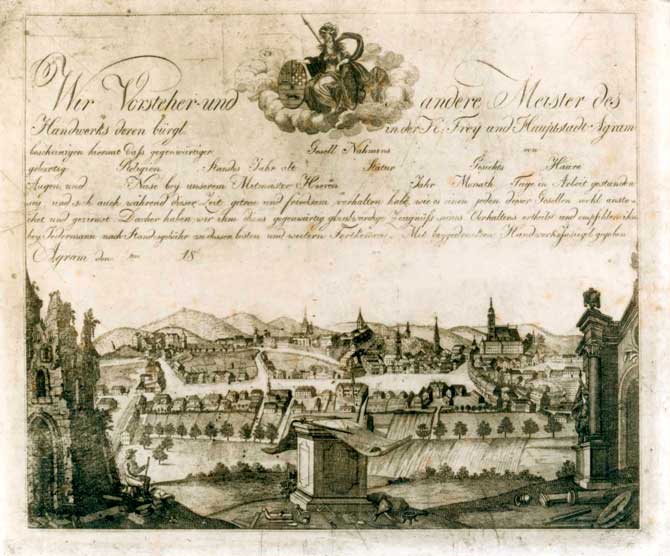 Wir Vorsteher und andere Meister des
Handwerks deren bürgl. in der K. Frey und Hauptstadt Agram
bescheinigen hiermit daß gegenwärtiger Gesell Nahmens von
gebürtig Religion Standes Jahr alt Statur Gesichts Haare
Augen und Nase bey unserem Mitmeister Herren Jahr Monath Tage in Arbeit gestanden
sey, und sich auch während dieser Zeit getreu und friedsam verhalten habe, wie es einem jeden Gesellen wohl anste-
het und geziemt Dacher haben wir ihm dieses gegenwärtig glaubwürdige Zeugniß seines Verhaltens ertheilt und empfehlen ihn
bey Jedermann nach Stand gebühr zu dessen besten und weitern Fortkommen. Mit beygedrucktem Handwerks Insiegl gegeben
Agram den ten 18